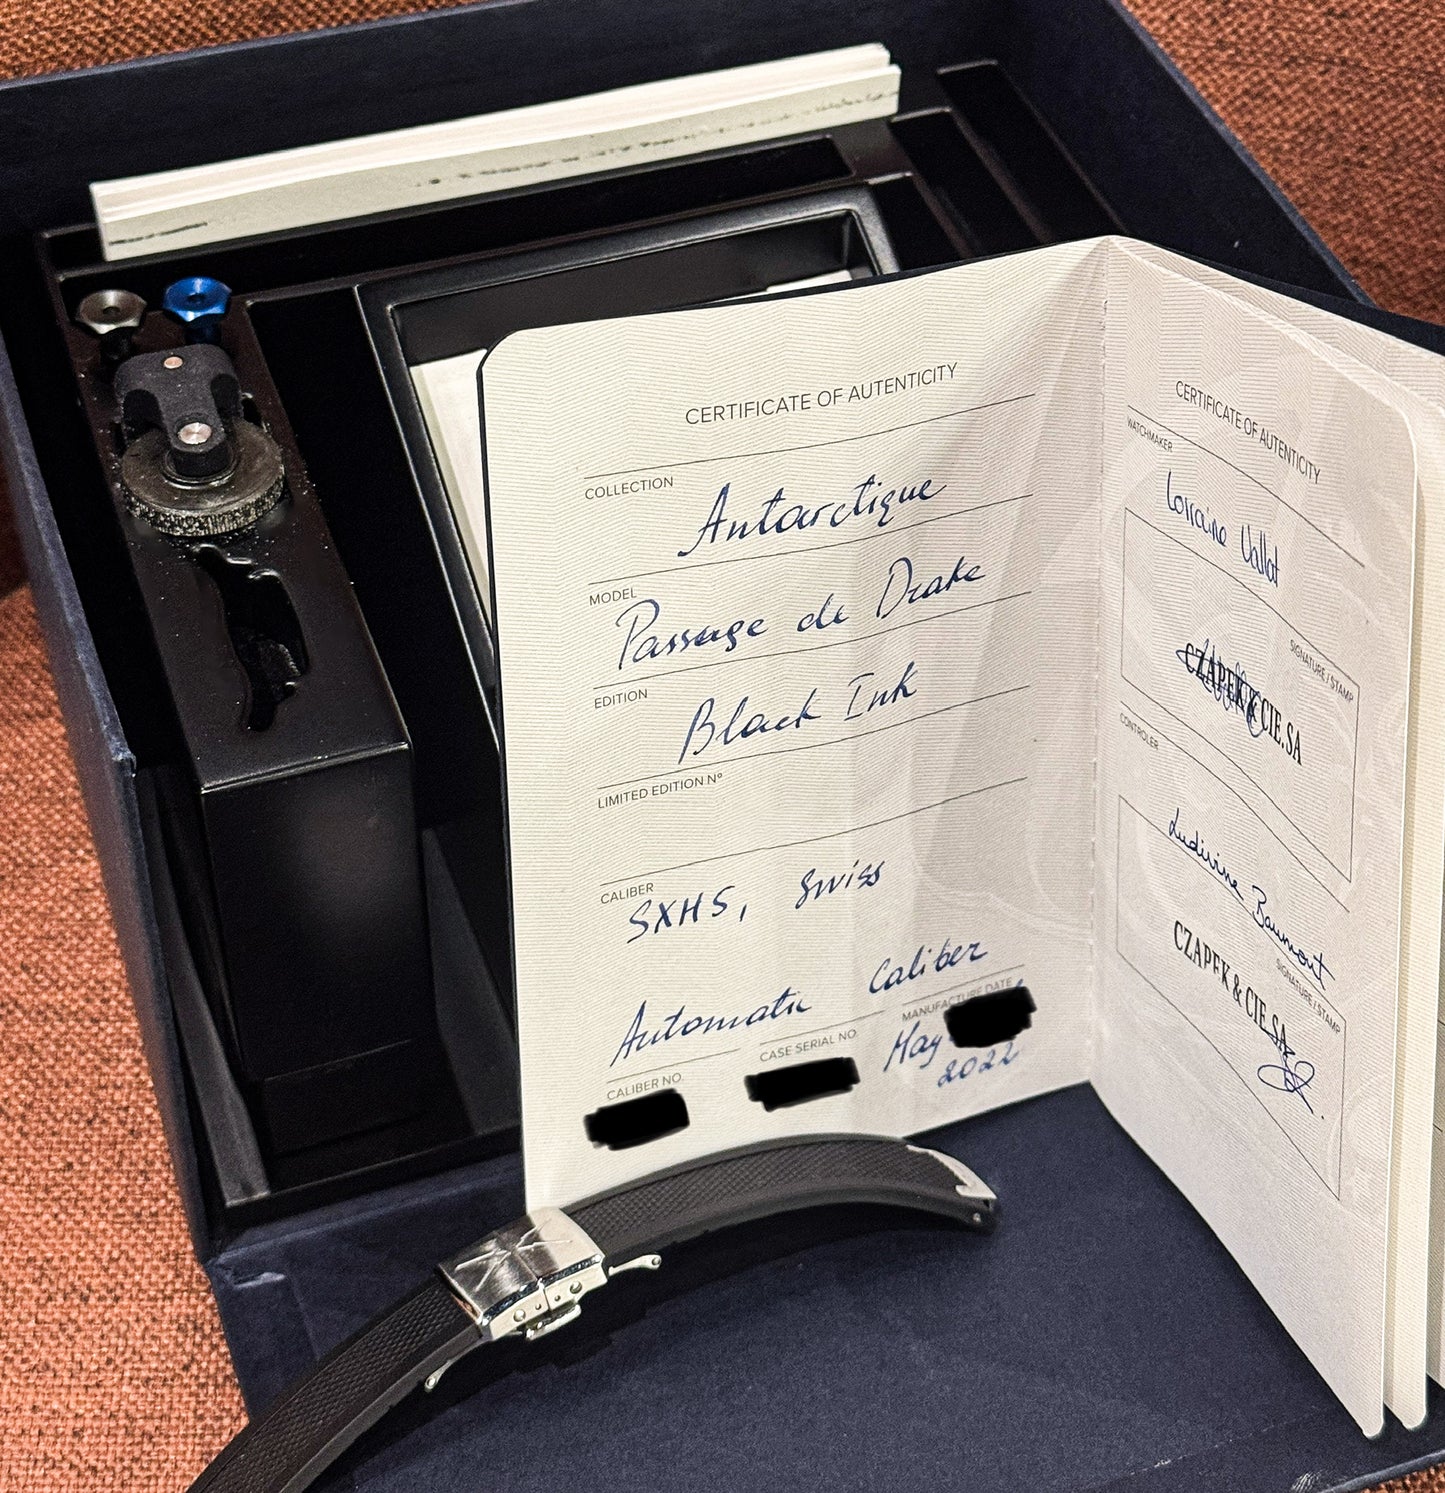 CERTIFICATE OF AUTENTICITY
COLLECTION
Antarctique
MODEL
Passage de Drake
EDITION
Black Ink
LIMITED EDITION Nº
CALIBER
SXH5, Swiss
Automatic Caliber
CALIBER NO.
CASE SERIAL NO.
MANUFACTURE DATE
May
2022
CERTIFICATE OF AUTENTICITY
WATCHMAKER
Lorraine Vallat
SIGNATURE / STAMP
CZAPEK & CIE.SA
CONTROLER
Ludivine Baumont
SIGNATURE / STAMP
CZAPEK & CIE.SA